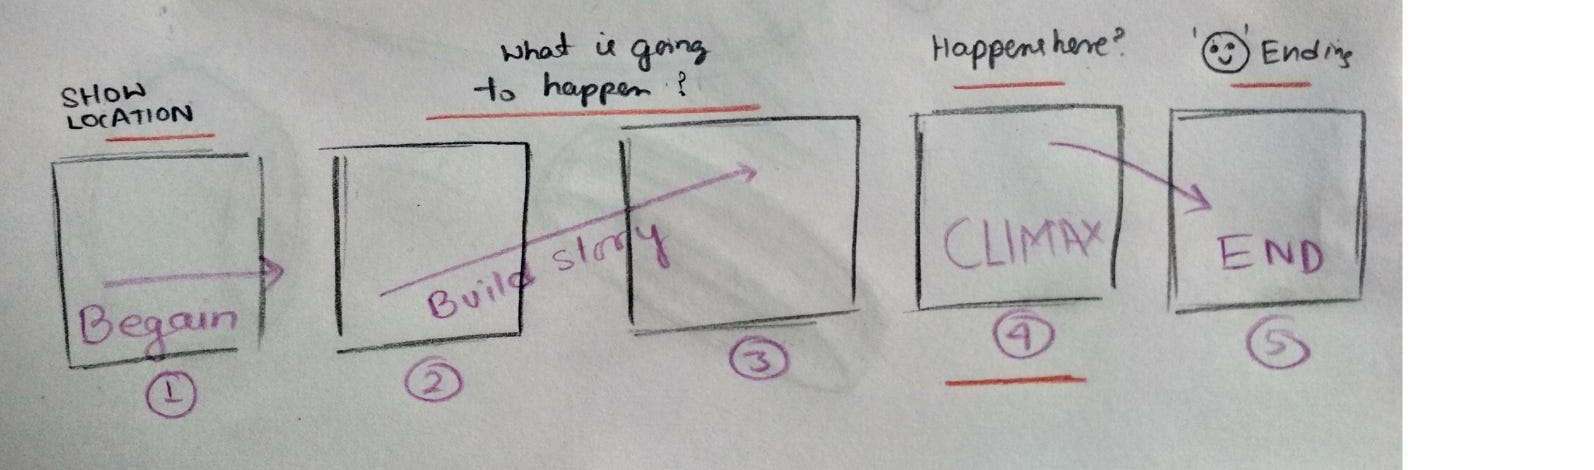 SHOW
LOCATION
What is going
to happen ?
Happens here?
' ' Ending
Begain
Build story
CLIMAX
END
1
2
3
4
5